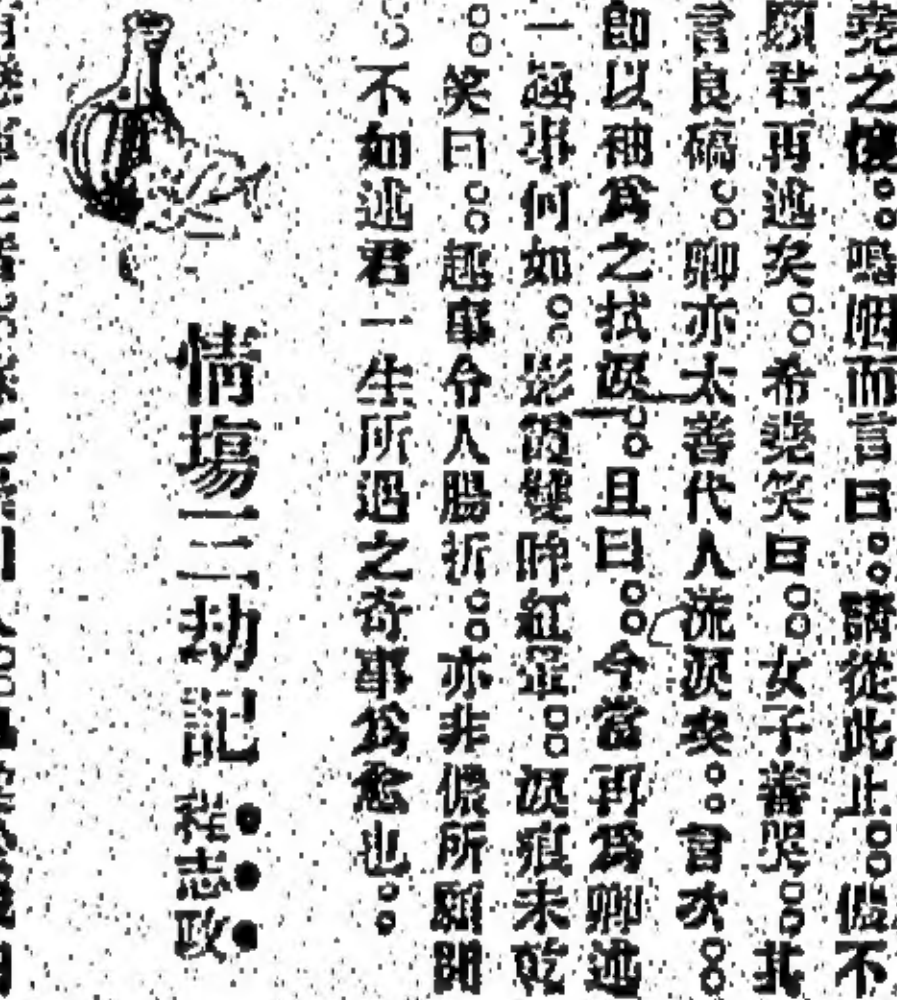 堯之懷。。鳴咽而言曰。。請從此止。。儂不
願君再述矣。。希堯笑曰。。女子善哭。。其
言良確。。卿亦太善代人流淚矣。。言次。。
即以袖爲之拭淚。。且曰。。今當再爲卿述
一趣事何如。。彭雙眸紅暈。。淚痕未乾
。。笑曰。。趣事令人腸折。。亦非儂所願聞
。。不如述君一生所遇之奇事爲愈也。。
情塲三劫記
程志政